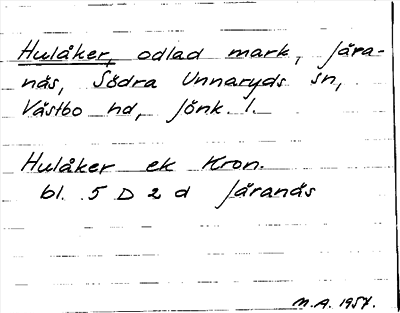 Hulåker, odlad mark, Jära-
näs, Södra Unnaryds sn,
Västbo hd, Jönk. l.
Hulåker ek Kron.
bl. 5 D 2 d Järanäs
M.A. 1957.